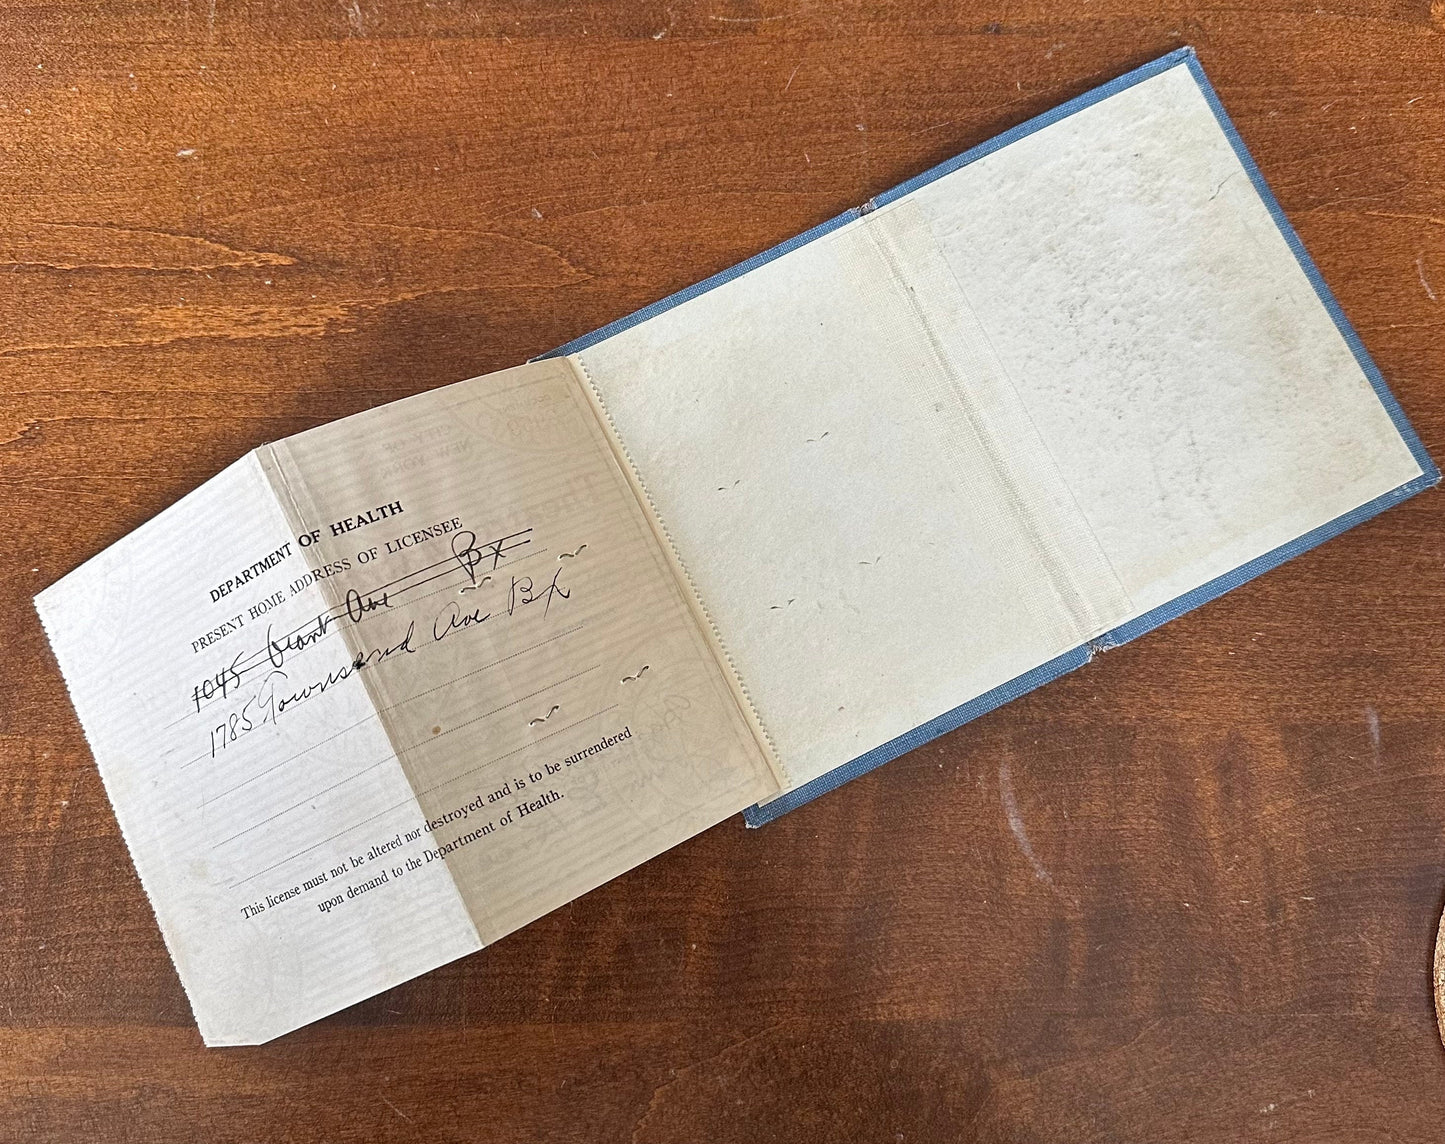 DEPARTMENT OF HEALTH
PRESENT HOME ADDRESS OF LICENSEE
1045 Grant Ave Bx
1785 Townsend Ave BX
This license must not be altered nor destroyed and is to be surrendered
upon demand to the Department of Health.